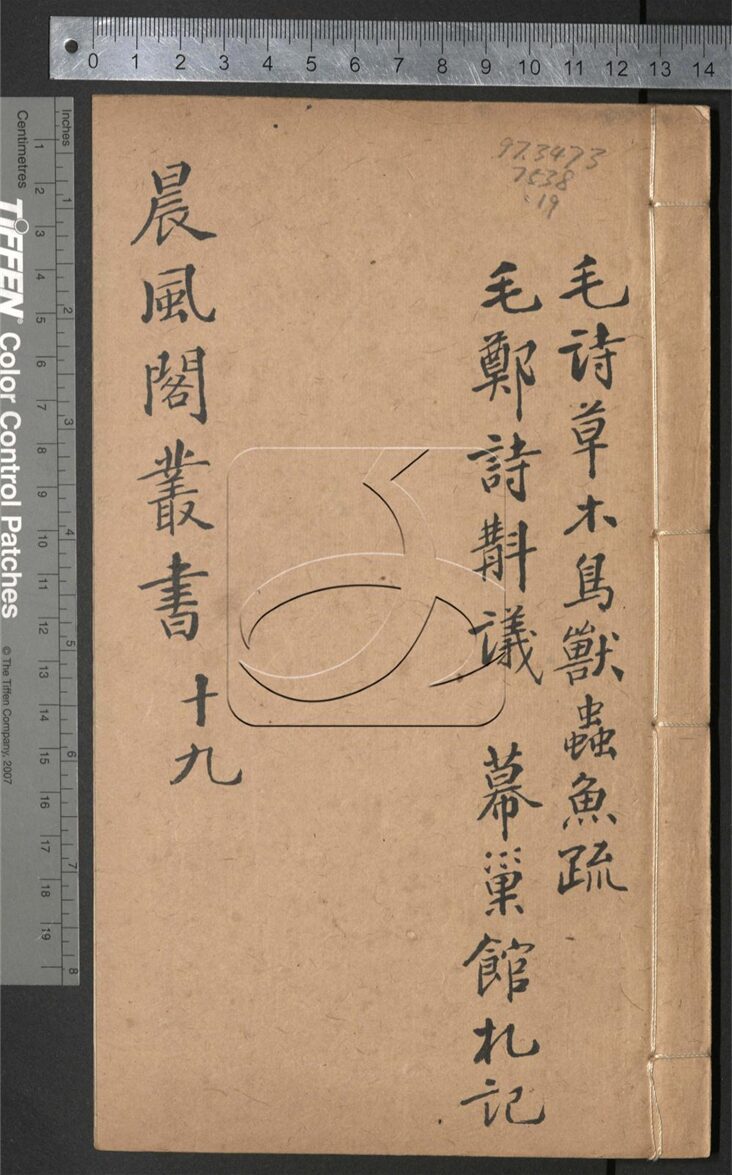 毛詩草木鳥獸蟲魚疏
毛鄭詩斠議　幕巢館札記
晨風閣叢書 十九
97.3473
7538
:19
0 1 2 3 4 5 6 7 8 9 10 11 12 13 14
Inches
1 2 3 4 5 6 7 8
Centimetres
1 2 3 4 5 6 7 8 9 10 11 12 13 14 15 16 17 18 19
TIFFEN® Color Control Patches
© The Tiffen Company, 2007